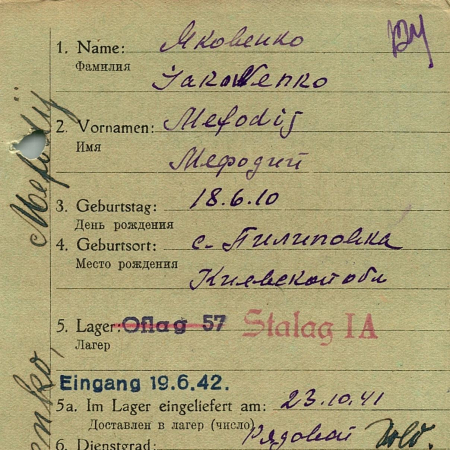 1. Name: Яковенко
Фамилия
Jakowenko
2. Vornamen: Mefodij
Имя
Мефодий
3. Geburtstag: 18.6.10
День рождения
4. Geburtsort: с. Пилиповка
Место рождения
Киевской обл
5. Lager Oflag 57 Stalag IA
Лагерь
Eingang 19.6.42.
5a. Im Lager eingeliefert am: 23.10.41
Доставлен в лагерь (число)
6. Dienstgrad: Рядовой Sold.
Mefodij
enko,